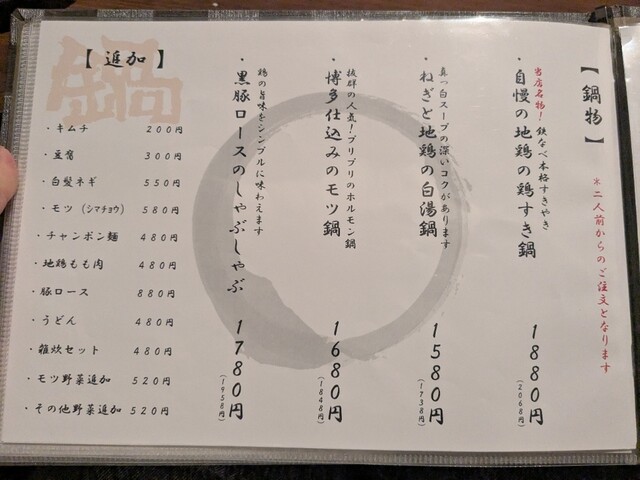 【鍋物】
※二人前からのご注文となります
当店名物！鉄なべ本格すきやき
・自慢の地鶏の鶏すき鍋
1880円
(2068円)
真っ白スープの深いコクがあります
・ねぎと地鶏の白湯鍋
1580円
(1738円)
抜群の人気！プリプリのホルモン鍋
・博多仕込みのモツ鍋
1680円
(1848円)
豚の旨味をシンプルに味わえます
・黒豚ロースのしゃぶしゃぶ
1780円
(1958円)
鍋
【追加】
・キムチ 200円
・豆腐 300円
・白髪ネギ 550円
・モツ（シマチョウ） 580円
・チャンポン麺 480円
・地鶏もも肉 480円
・豚ロース 880円
・うどん 480円
・雑炊セット 480円
・モツ野菜追加 520円
・その他野菜追加 520円